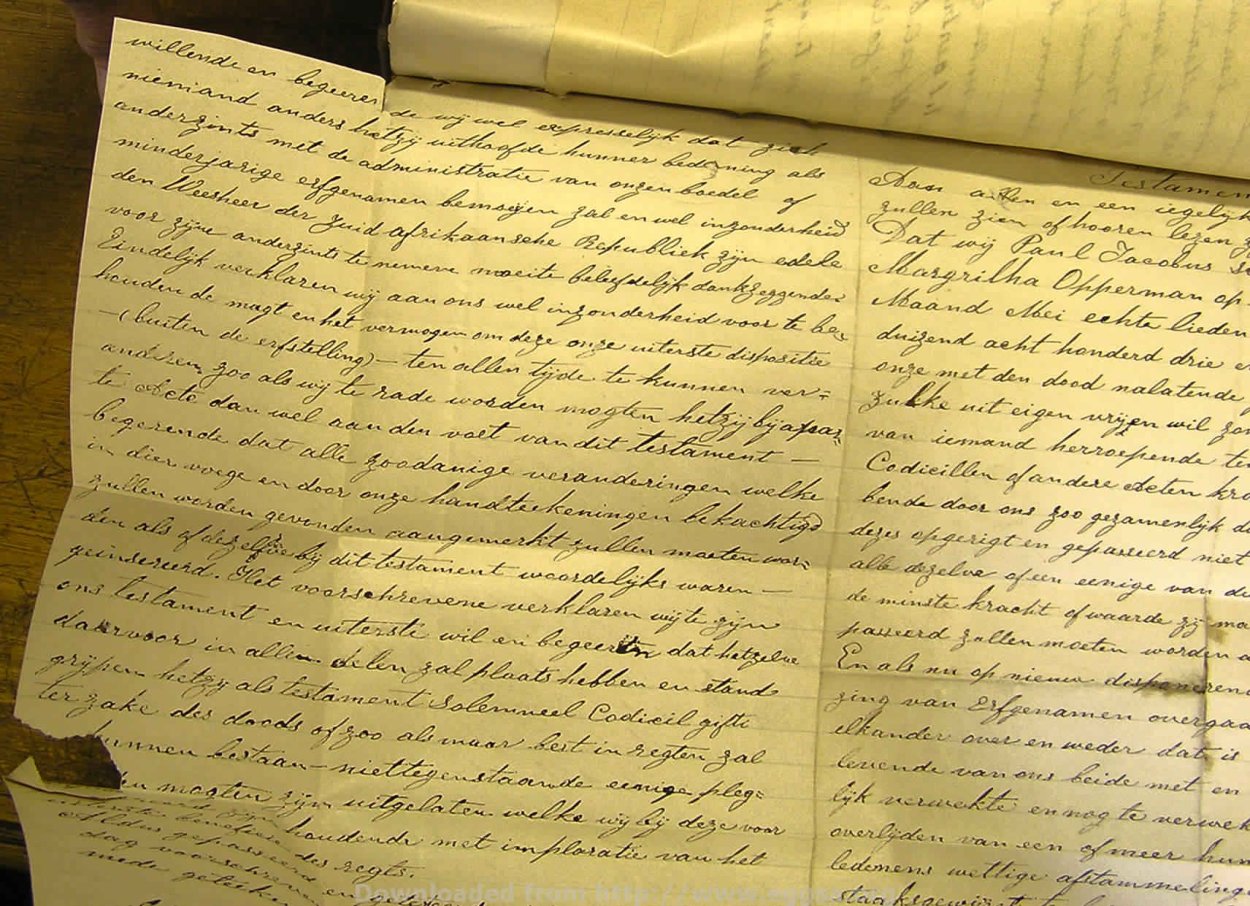 willende en begeeren de wij wel expresselijk dat zich
niemand anders hetzij uithoofde hunner bediening als
anderzints met de administratie van onzen boedel of
minderjarige erfgenamen bemoeijen zal en wel inzonderheid
den Weesheer der Zuid Afrikaansche Republiek zijn edele
voor zijne anderzints te nemene moeite beleefdelijk dankzeggende
Eindelijk verklaren wij aan ons wel inzonderheid voor te be
houden de magt en het vermogen om deze onze uiterste dispositie
— (buiten de erfstelling) — ten allen tijde te kunnen ver=
anderen, zoo als wij te rade worden mogten hetzij bij apar
te Acte dan wel aan den voet van dit testament —
begerende dat alle zoodanige veranderingen welke
in dier voege en door onze handteekeningen bekrachtigd
zullen worden gevonden aangemerkt zullen moeten wor
den als of dezelfde bij dit testament woordelijks waren —
geinsereerd. Het voorschrevene verklaren wij te zijn
ons testament en uiterste wil en begeerten dat hetzelve
daarvoor in allen delen zal plaats hebben en stand
grijpen hetzij als testament Solemneel Codicil gifte
ter zake des doods of zoo als maar best in regten zal
kunnen bestaan — niettegenstaande eenige pleg=
moeten zijn uitgelaten welke wij bij deze voor
houdende met imploratie van het
des regts.
Aldus gepasseerd
dag voorschreven en
mede geteeken
Testamen
Aan allen en een iegelijk
zullen zien of hooren lezen
Dat wij Paul Jacobus
Margritha Opperman op
Maand Mei echte lieden
duizend acht honderd drie
onze met den dood nalatende
zulke uit eigen vrijen wil
van iemand herroepende
Codicillen of andere Acten
bende door ons zoo gezamenlijk
dezes opgerigt en gepasseerd niet
alle dezelve of een eenige van
de minste kracht of waarde zij
passeerd zullen moeten worden
En als nu op nieuw
zing van Erfgenamen
elkander over en weder dat is
levende van ons beide met en
lijk verwekte en nog te
overlijden van een of meer
ledenens wettige afstammelinge
staaksgewijze te
Downloaded from http://www